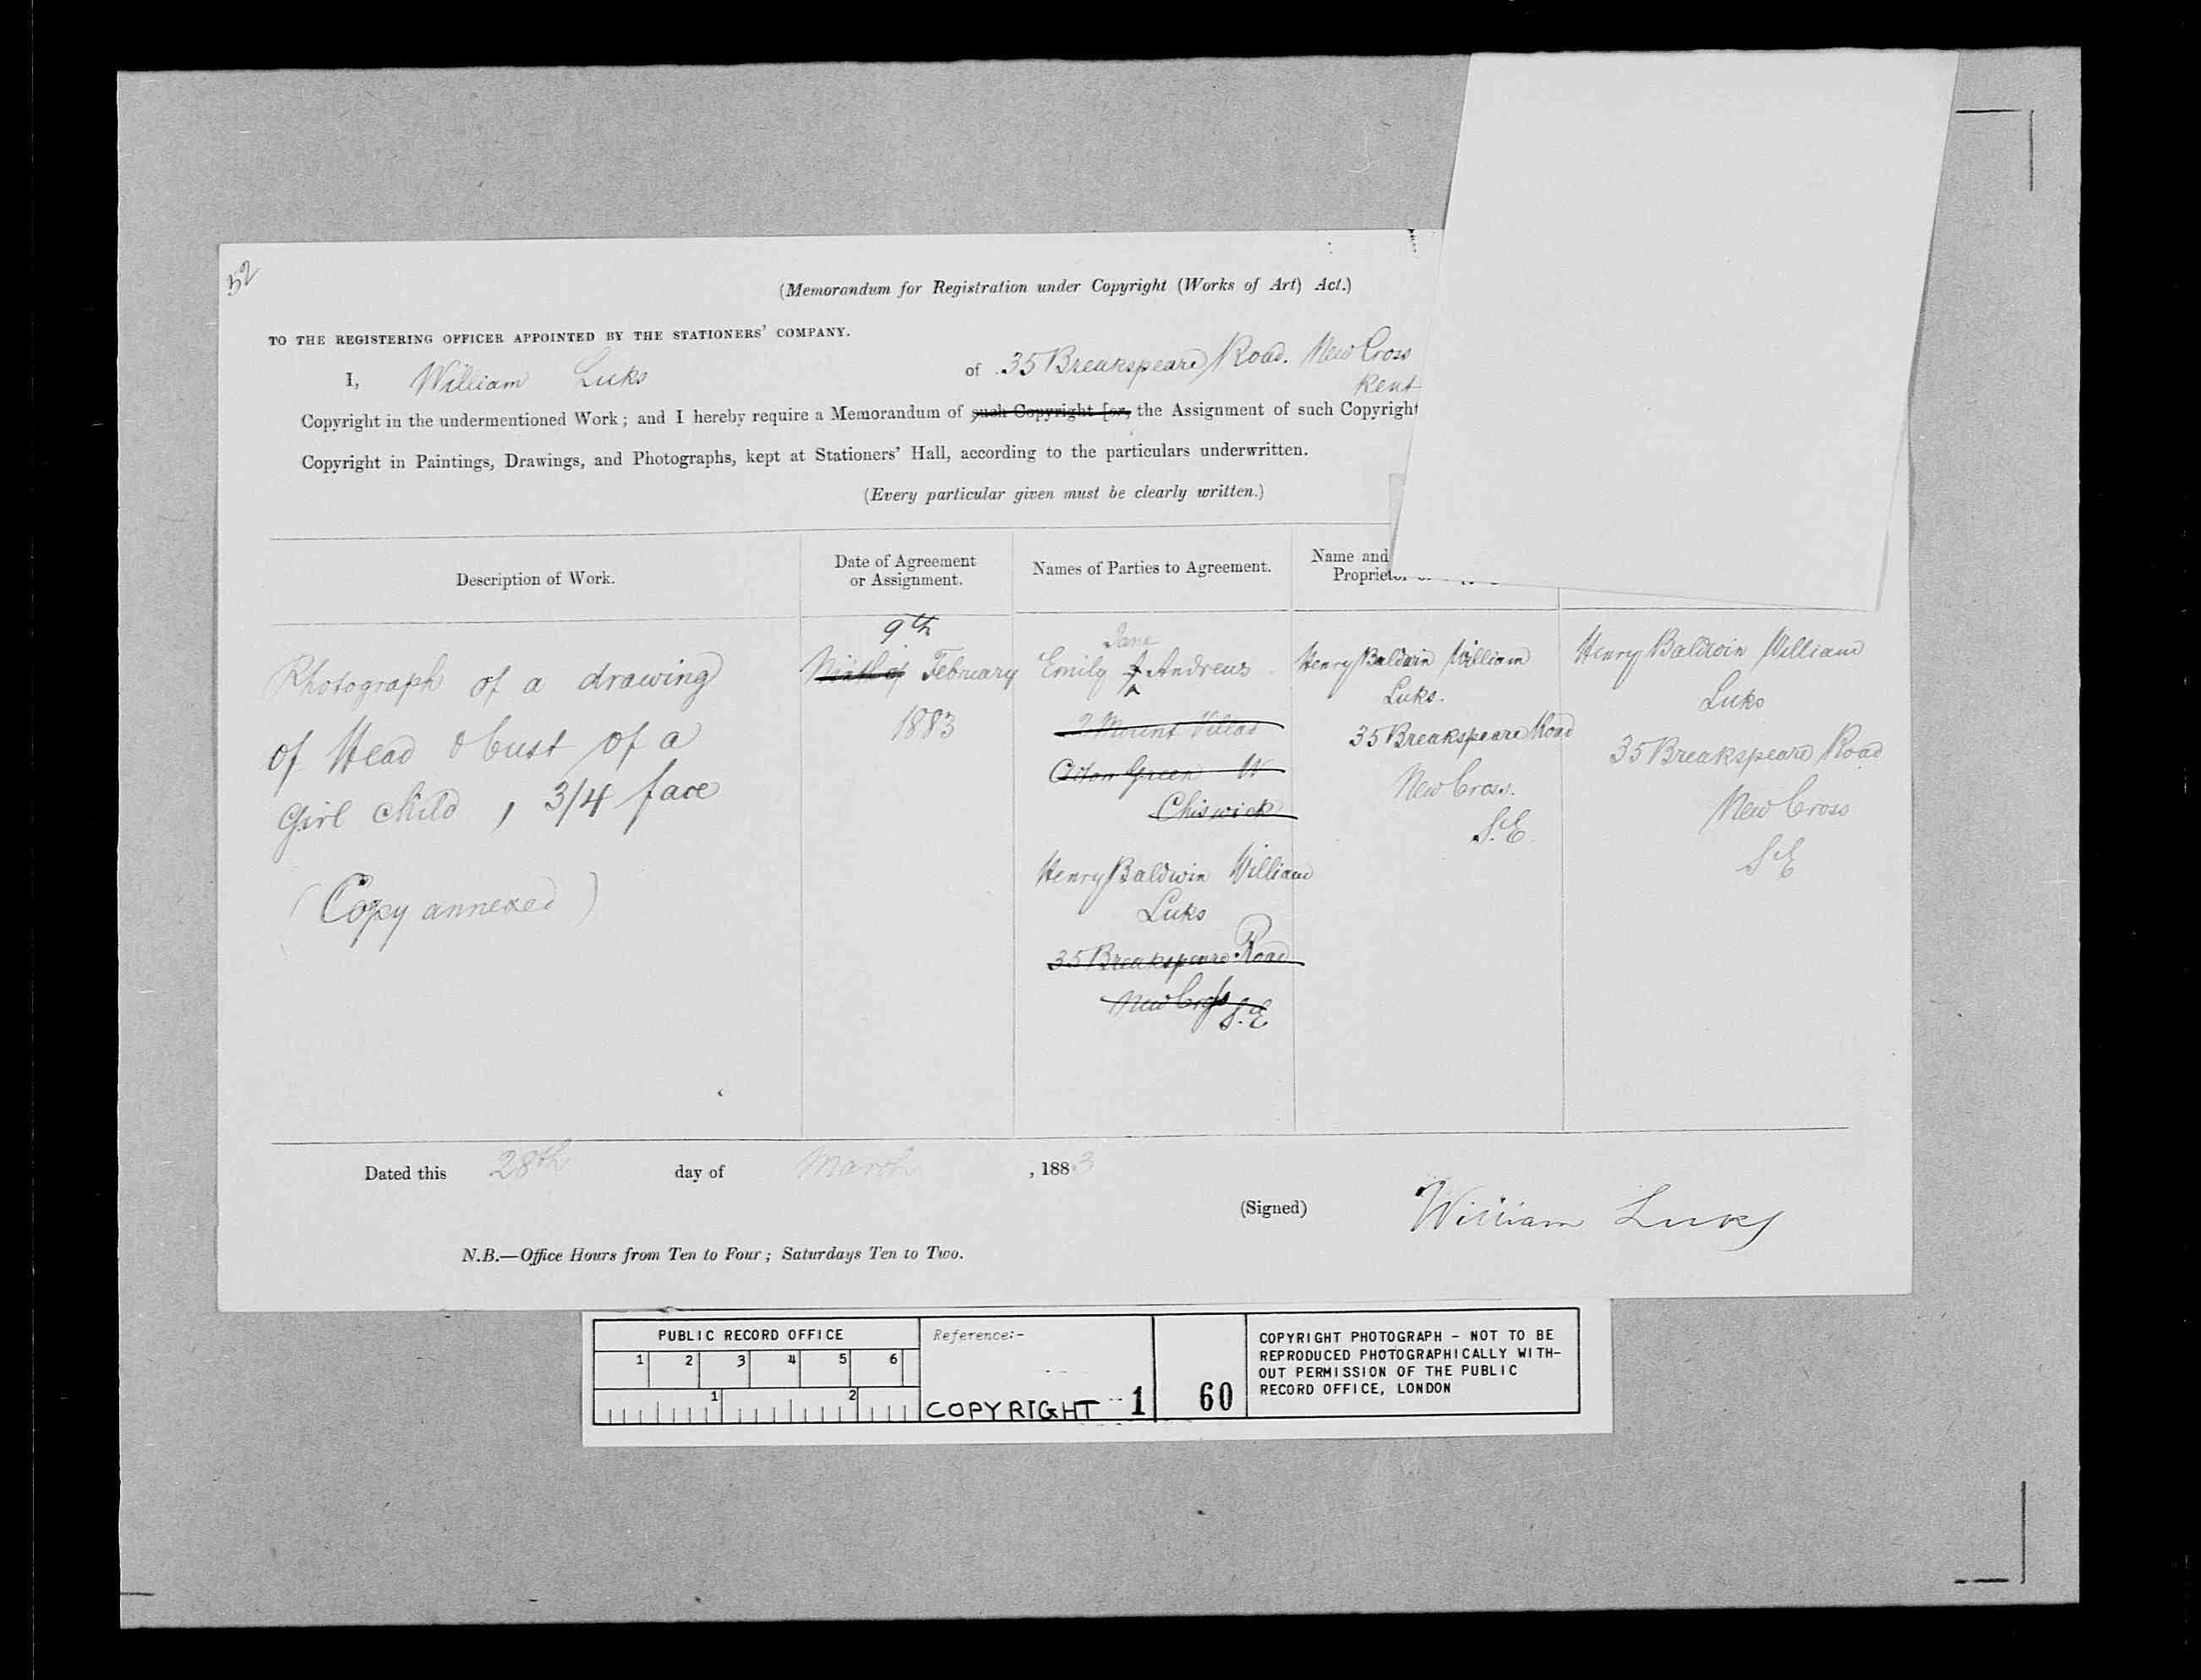 52
(Memorandum for Registration under Copyright (Works of Art) Act.)
TO THE REGISTERING OFFICER APPOINTED BY THE STATIONERS' COMPANY.
I, William Luks of 35 Breakspeare Road. New Cross
Kent
Copyright in the undermentioned Work; and I hereby require a Memorandum of such Copyright [or, the Assignment of such Copyright
Copyright in Paintings, Drawings, and Photographs, kept at Stationers' Hall, according to the particulars underwritten.
(Every particular given must be clearly written.)
Description of Work.
Photograph of a drawing
of Head & bust of a
Girl child, 3/4 face
(Copy annexed)
Date of Agreement
or Assignment.
9th
Ninth of February
1883
Names of Parties to Agreement.
Jane
Emily J Andrews
2 Mount Villas
Acton Green W
Chiswick
Henry Baldwin William
Luks
35 Breakspeare Road
New Cross S.E
Name and
Proprietor
Henry Baldwin William
Luks.
35 Breakspeare Road
New Cross.
S.E.
Henry Baldwin William
Luks
35 Breakspeare Road
New Cross
S.E
Dated this 28th day of March, 1883
(Signed) William Luks
N.B.—Office Hours from Ten to Four; Saturdays Ten to Two.
PUBLIC RECORD OFFICE
1 2 3 4 5 6
1 2
Reference:-
COPYRIGHT 1 60
COPYRIGHT PHOTOGRAPH - NOT TO BE
REPRODUCED PHOTOGRAPHICALLY WITH-
OUT PERMISSION OF THE PUBLIC
RECORD OFFICE, LONDON